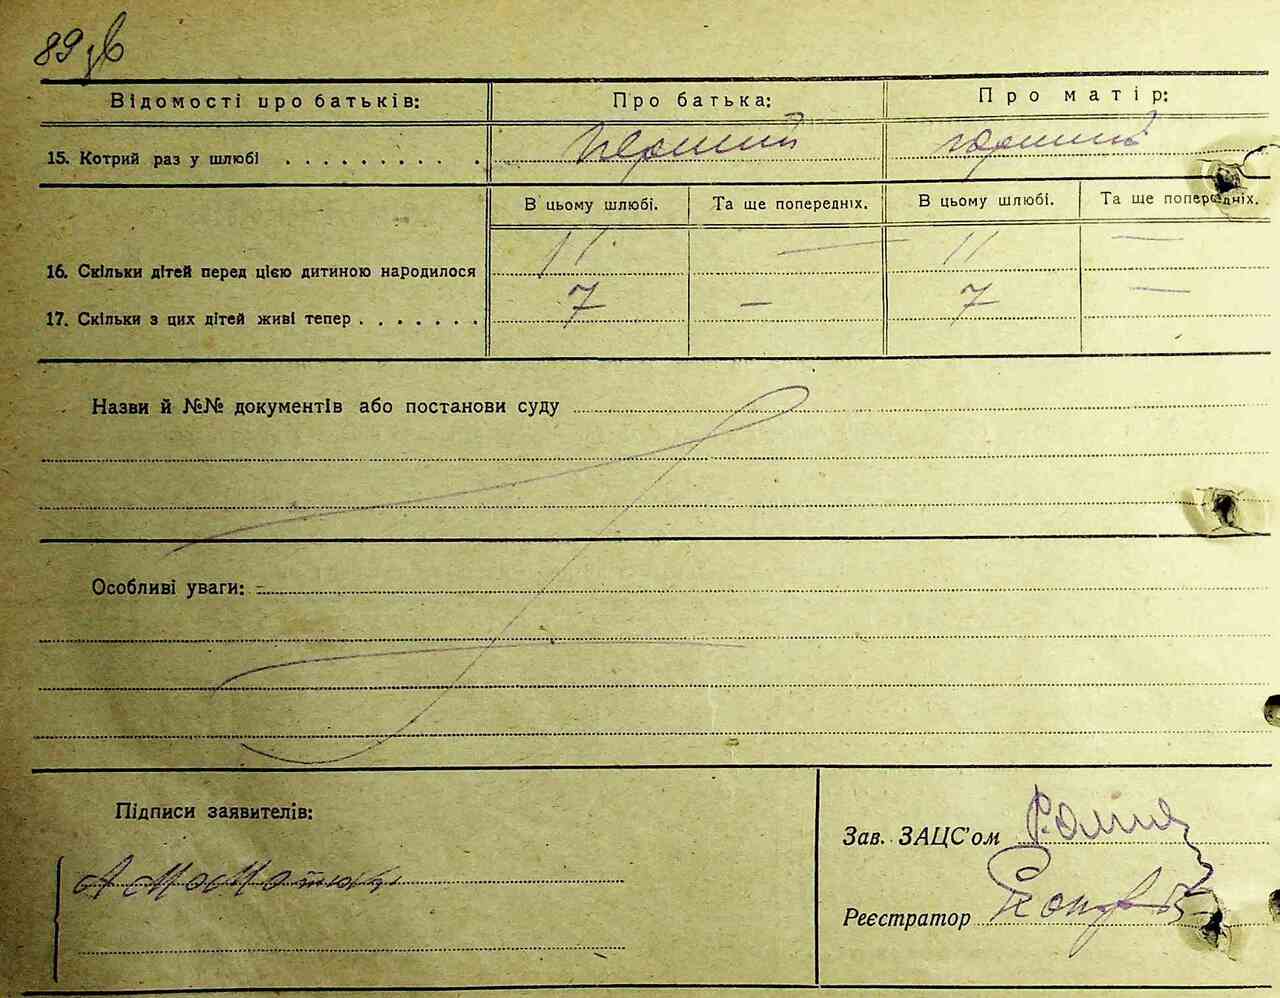 89 зв
Відомості про батьків: Про батька: Про матір:
15. Котрий раз у шлюбі . . . . . . . . . . перший перший
В цьому шлюбі. Та ще попередніх. В цьому шлюбі. Та ще попередніх.
16. Скільки дітей перед цією дитиною народилося 11 — 11 —
17. Скільки з цих дітей живі тепер . . . . . . . 7 — 7 —
Назви й №№ документів або постанови суду
Особливі уваги:
Підписи заявителів:
Зав. ЗАЦС'ом
Реєстратор